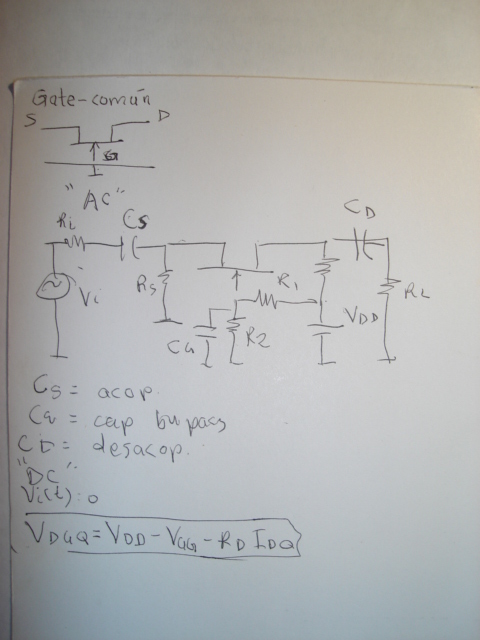 Gate-común
S D
G
"AC"
Ri Cs CD
Vi Rs R1 RL
CG R2 VDD
Cs = acop.
CG = cap bypass
CD = desacop.
"DC"
Vi(t): 0
VDGQ = VDD - VGG - RD IDQ